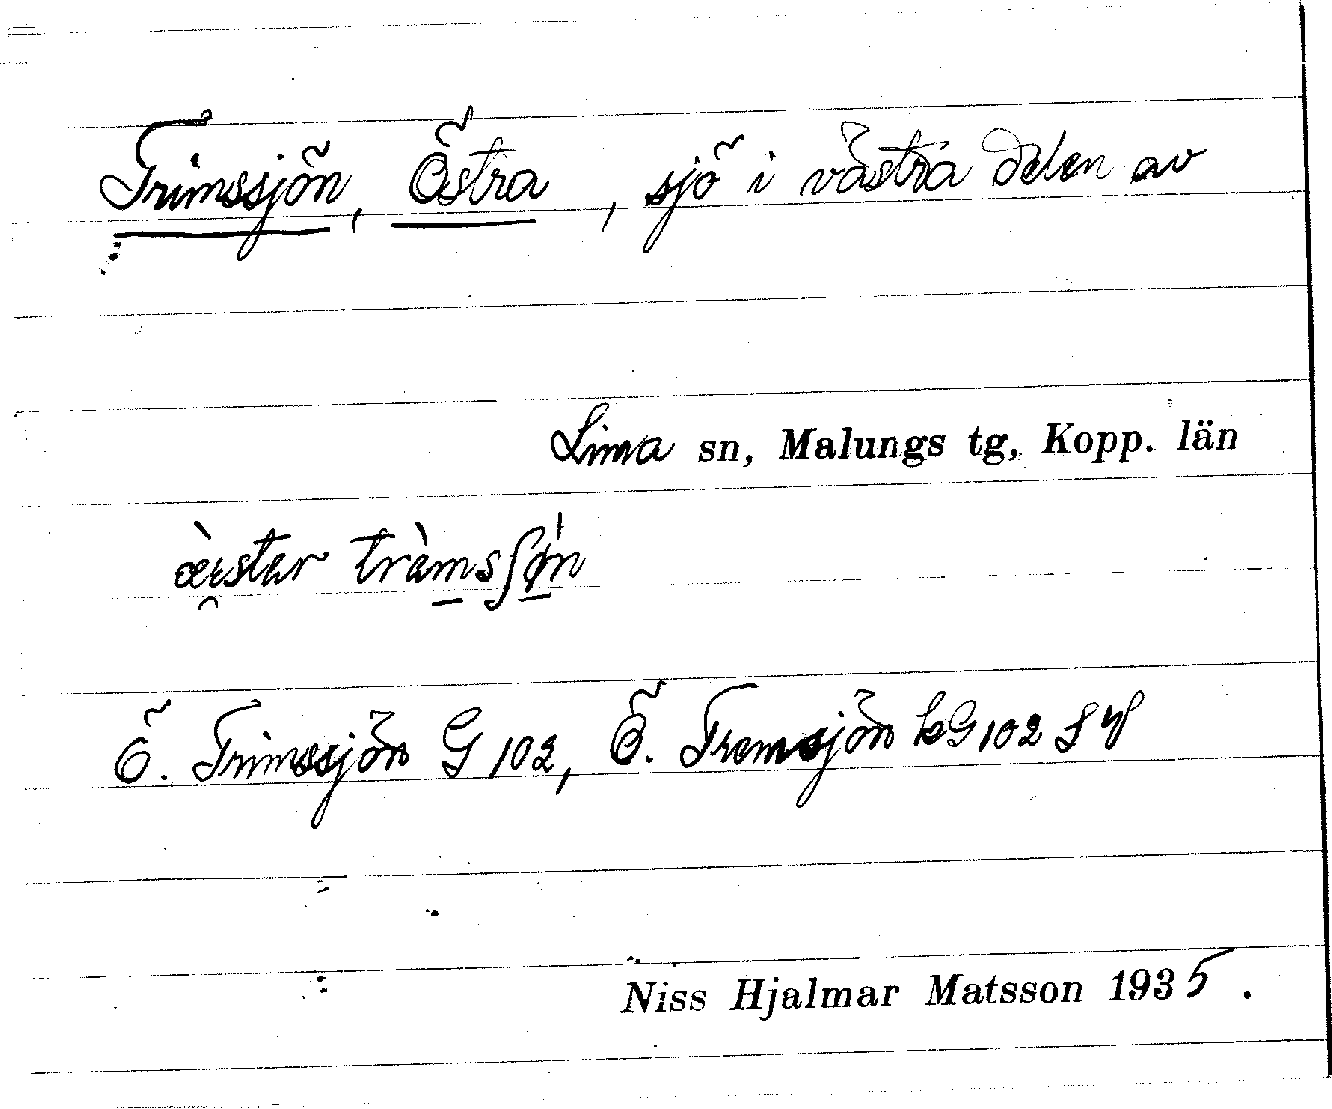 Trimssjön, Östra, sjö i västra delen av
Lima sn, Malungs tg, Kopp. län
æ̀ɛ̯star tràmsʃøn
Ö. Trimssjön G 102, Ö. Tremsjön kG 102
Niss Hjalmar Matsson 1935.